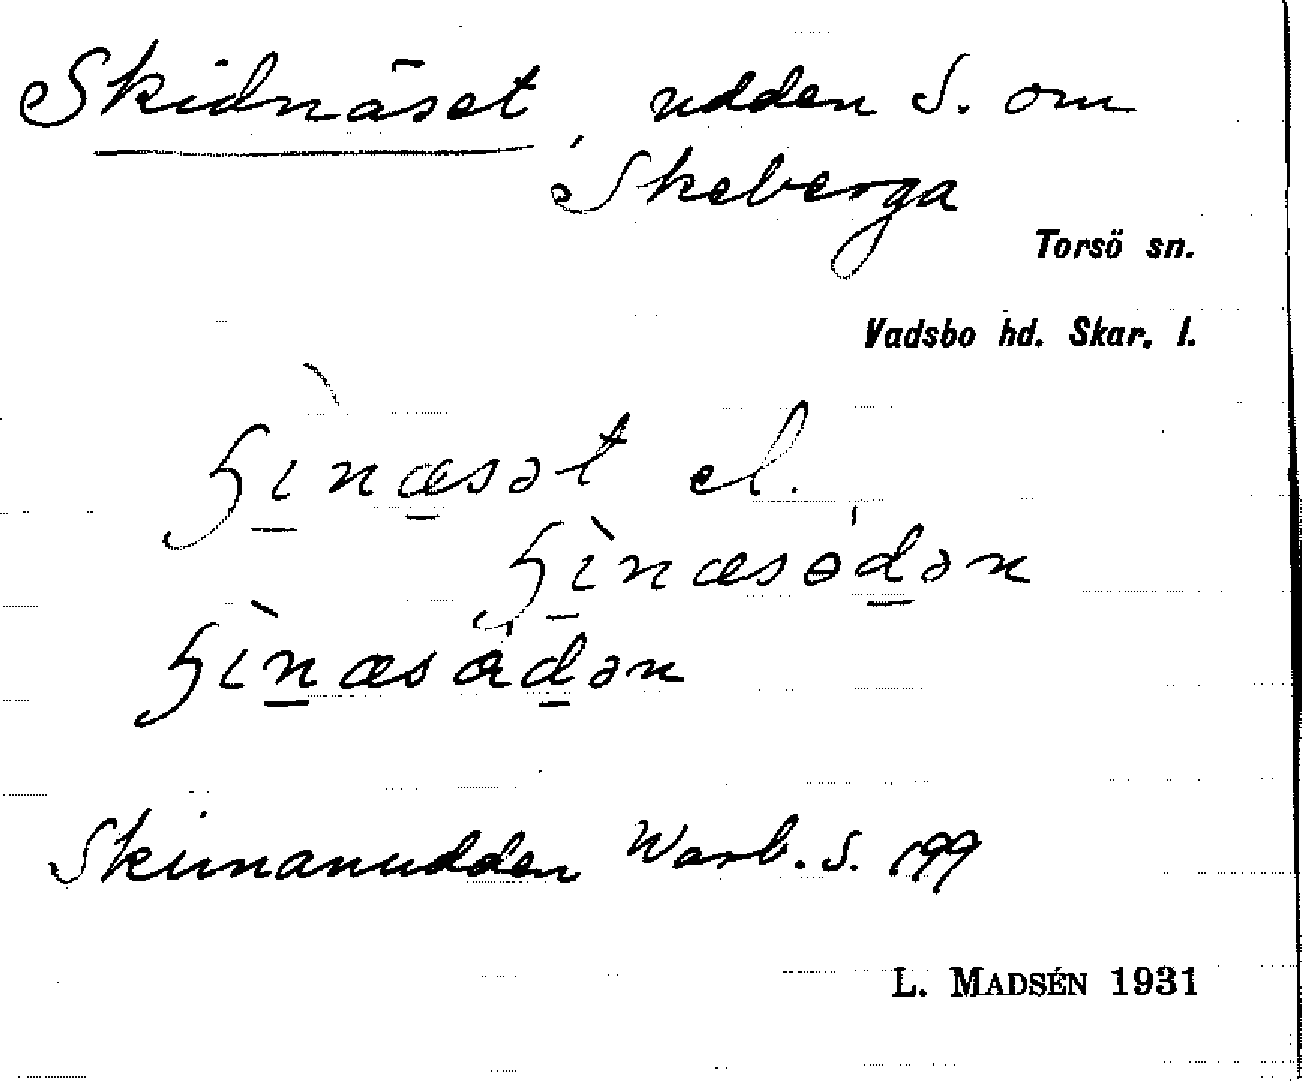 Skidnäset, udden S. om
Skeberga
Torsö sn.
Vadsbo hd. Skar. l.
ɧìnæsət el.
ɧìnæsədən
ɧìnæsádən
Skinnanudden Warb. S. 199
L. MADSÉN 1931